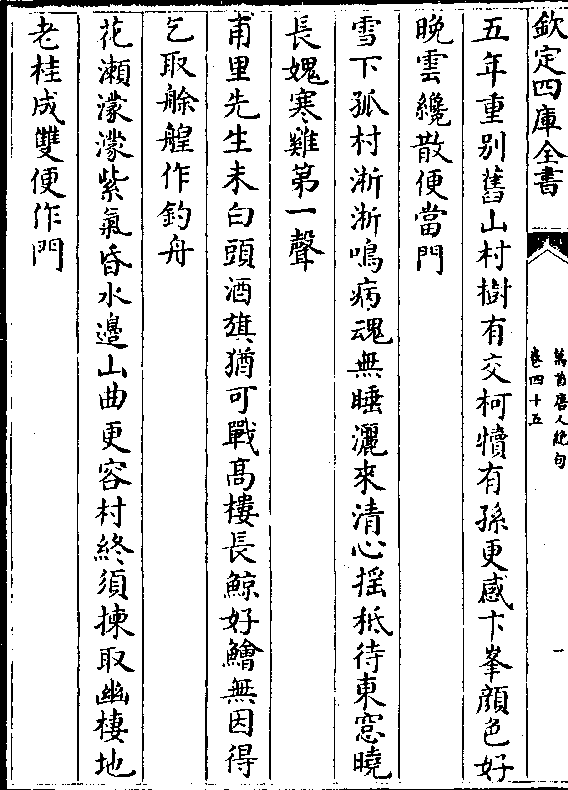 欽定四庫全書
萬首唐人絶句
卷四十五
一
五年重别舊山村樹有交柯犢有孫更感卞峯顔色好
晚雲纔散便當門
雪下孤村淅淅鳴病魂無睡灑來清心摇秪待東窓曉
長媿寒雞第一聲
甫里先生未白頭酒旗猶可戰高樓長鯨好鱠無因得
乞取艅艎作釣舟
花瀬濛濛紫氣昏水邊山曲更容村終須揀取幽棲地
老桂成雙便作門